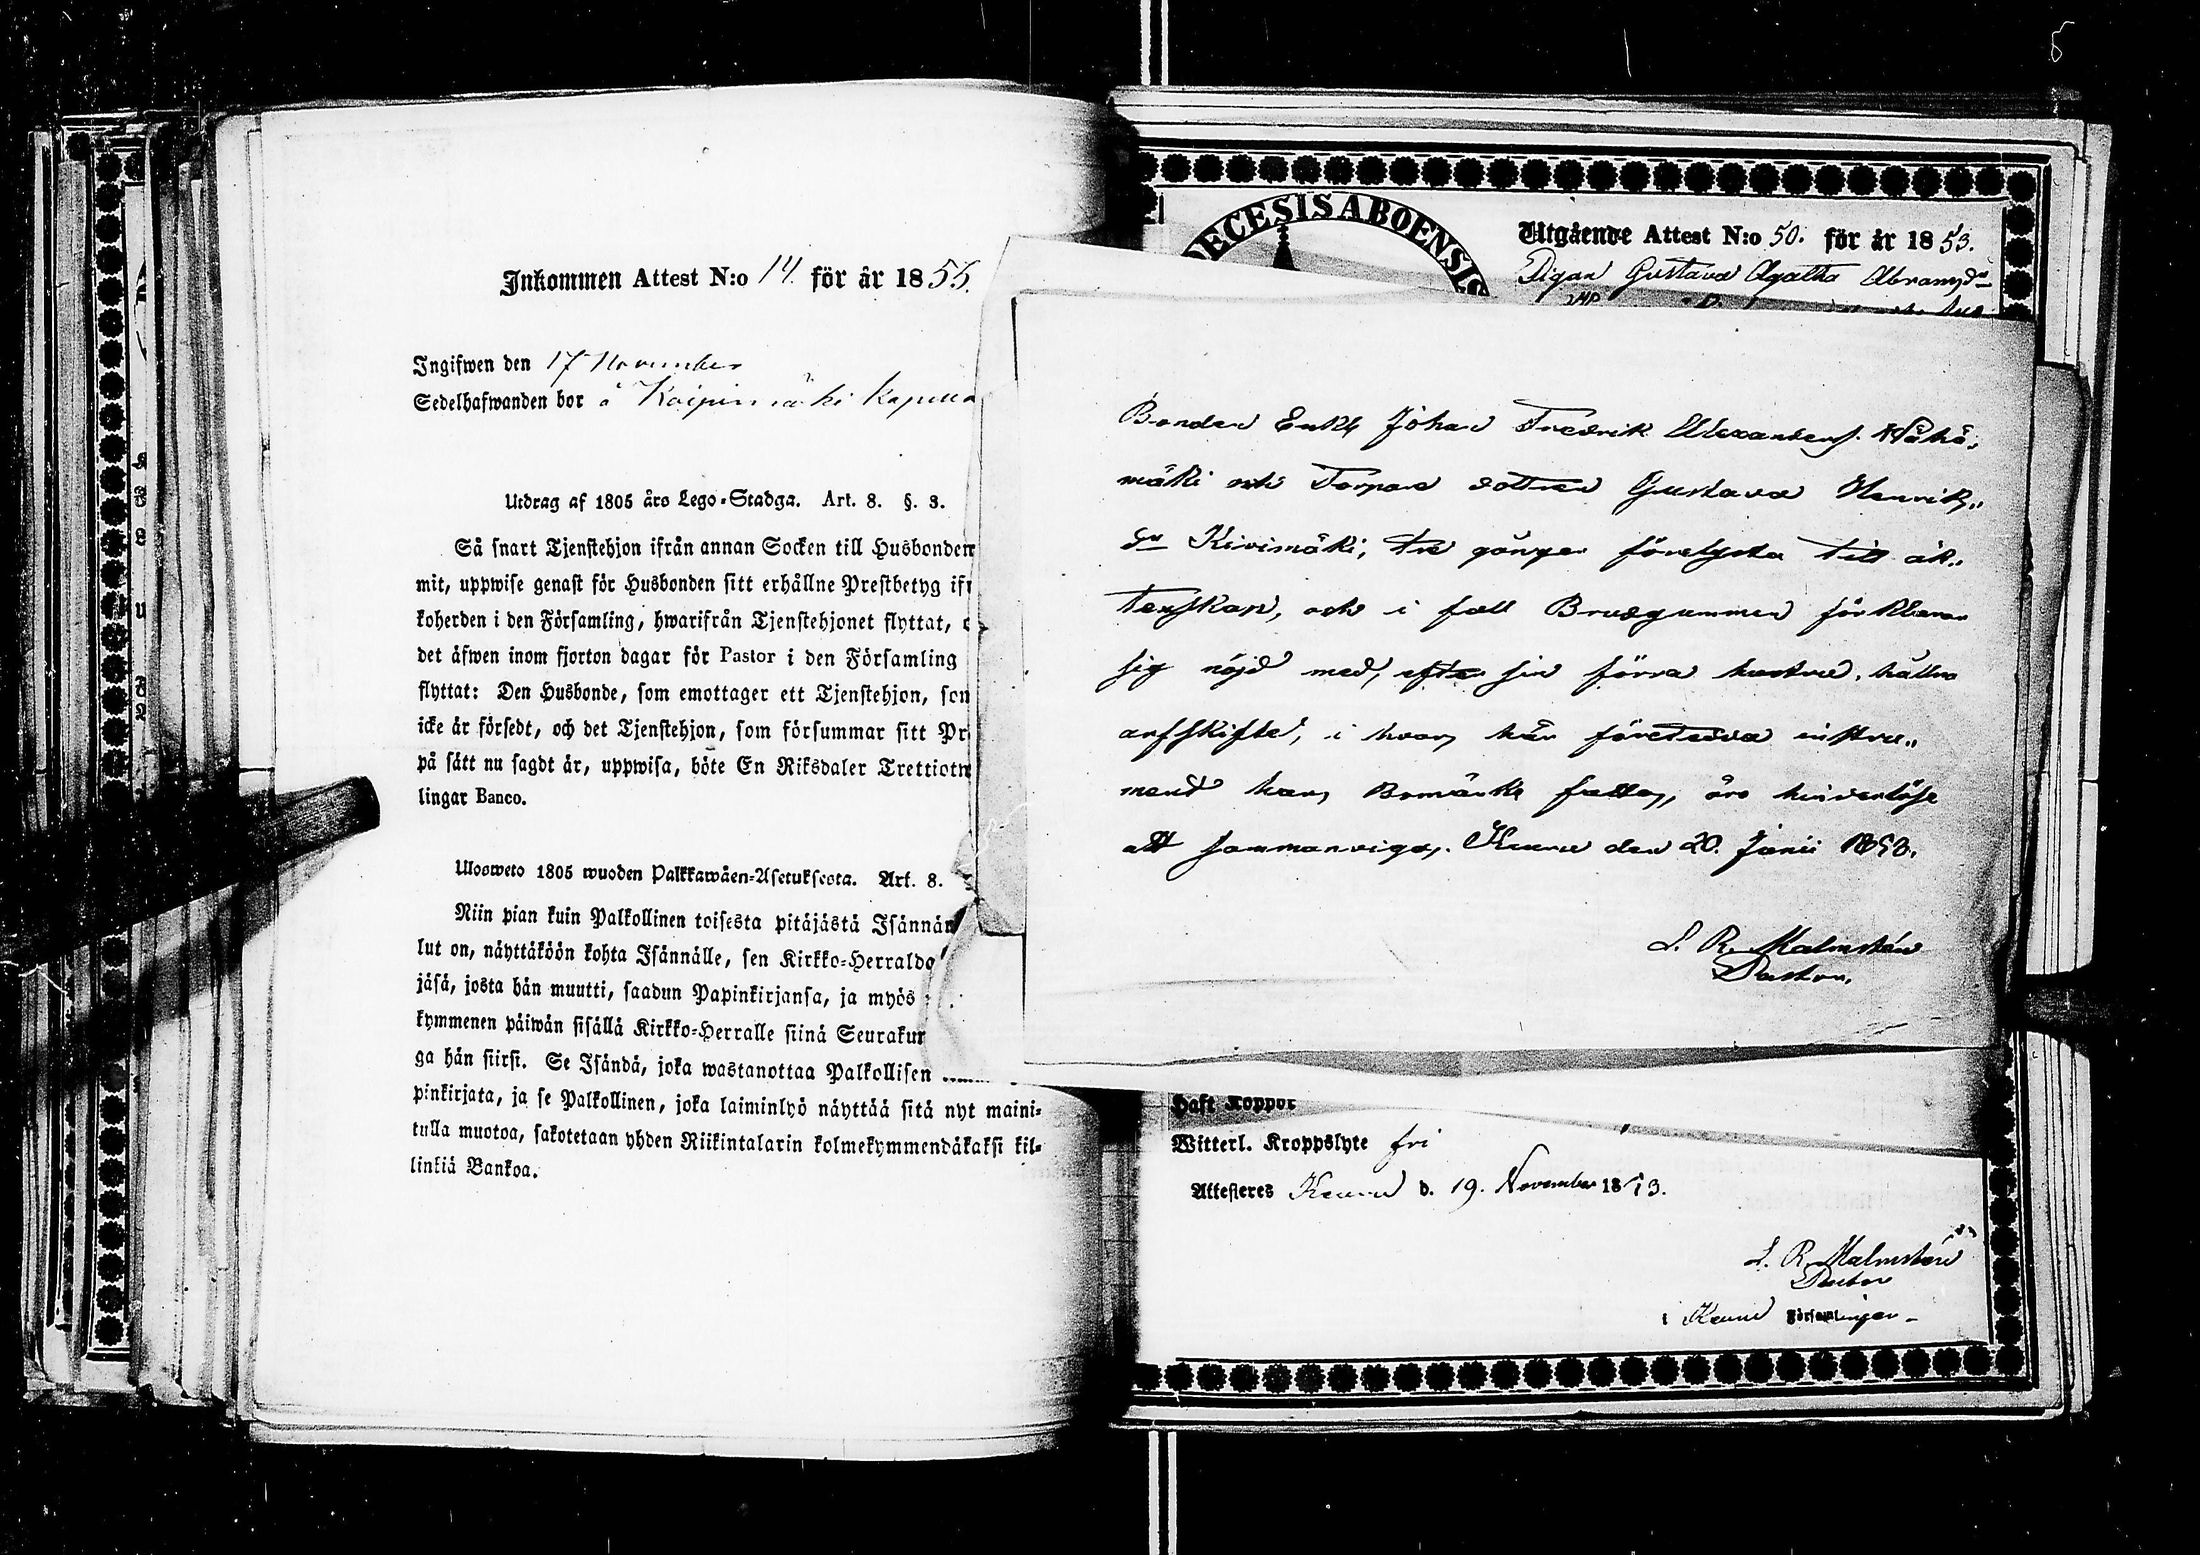 Inkommen Attest N:o 14. för år 1855.
Ingifwen den 17 November
Sedelhafwanden bor å Koipinmäki
Utdrag af 1805 års Lego-Stadga. Art. 8. §. 3.
Så snart Tjenstehjon ifrån annan Socken till Husbonden
mit, uppwise genast för Husbonden sitt erhållne Prestbetyg if
koherden i den Församling, hwarifrån Tjenstehjonet flyttat,
det äfwen inom fjorton dagar för Pastor i den Församling
flyttat: Den Husbonde, som emottager ett Tjenstehjon, som
icke är försedt, och det Tjenstehjon, som försummar sitt Pr
på sätt nu sagdt är, uppwisa, böte En Riksdaler Trettiotw
lingar Banco.
Ulosweto 1805 wuoden Palkkawäen-Asetuksesta. Art. 8.
Niin pian kuin Palkollinen toisesta pitäjästä Isännän
lut on, näyttäköön kohta Isännälle, sen Kirkko-Herralda
jäsä, josta hän muutti, saadun Papinkirjansa, ja myös
kymmenen päiwän sisällä Kirkko-Herralle siinä Seurakun
ga hän siirsi. Se Isändä, joka wastanottaa Palkollisen
pinkirjata, ja se Palkollinen, joka laiminlyö näyttää sitä nyt maini-
tulla muotoa, sakotetaan yhden Riikintalarin kolmekymmendäkaksi kil-
linkiä Bankoa.
DECESIS ABOENSIS
Utgående Attest N:o 50. för år 1853.
Pigan Gustava Agatha Abramsdr
Bonden Enkl Johan Fredrik Alexanders. Wähä-
mäki och Torpare dottren Gustava Henriks-
dr Kivimäki, tre gånger förelysta till äk-
tenskap, och i fall Brudgummen förklarar
sig nöjd med, efter sin förra hustru, hållne
arfskifte, i hvars här företedda instru-
ment han, Bomärke fattas, äro hinderlöse
att sammanvigas. Kuru den 20. Junii 1853.
L. R. Malmstén
Pastor.
Haft Koppor
Witterl. Kroppslyte fri
Attesteres Kuru d. 19. November 1853.
L. R. Malmstén
Pastor
i Kuru Församlingen